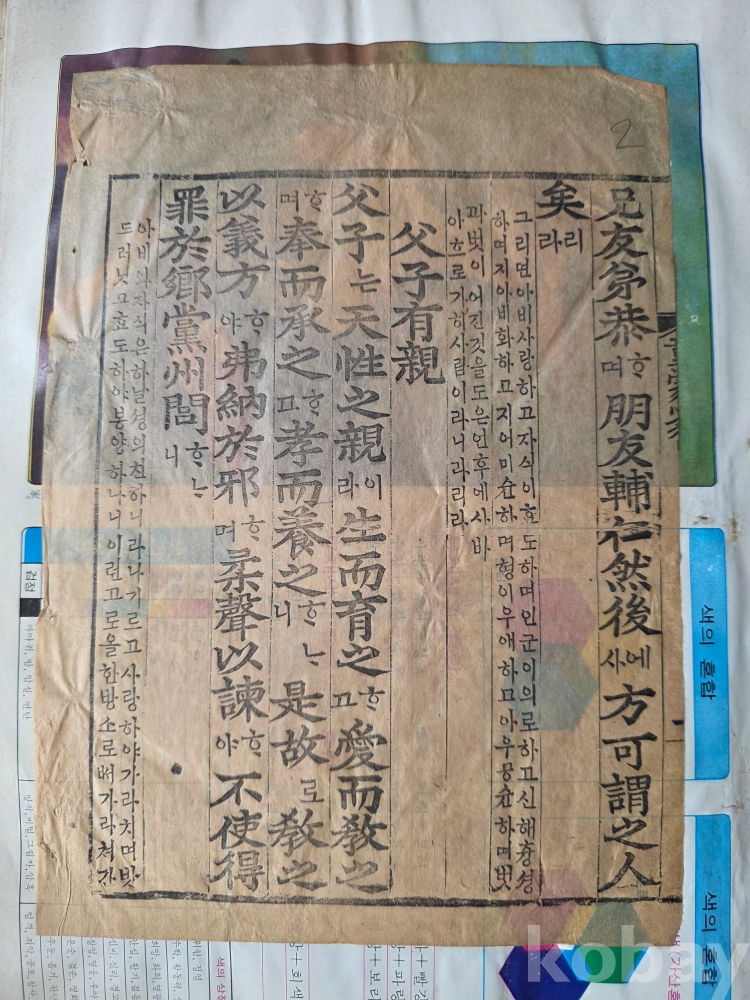 兄友弟恭ᄒᆞ며朋友輔仁然後에사方可謂之人
矣리라
그리면아비사랑하고자식이효도하며인군이의로하고신해츙셩
하며지아비화하고지어미슌하며형이우애하고아우공슌하며벗
과벗이어진것을도은연후에사바
야흐로가히사람이라니라리라
父子有親
父子는天性之親이라生而育之ᄒᆞ고愛而敎之
ᄒᆞ며奉而承之ᄒᆞ고孝而養之ᄒᆞᄂᆞ니是故로敎之
以義方ᄒᆞ야弗納於邪ᄒᆞ며柔聲以諫ᄒᆞ야不使得
罪於鄕黨州閭ᄒᆞᄂᆞ니
아비와자식은하날셩의친하니라나기르고사랑하야가라치며밧
드러닛고효도하야봉양하나니이런고로올한방소로써가라쳐간
2
색의 혼합
색의 혼합
검정
kobay